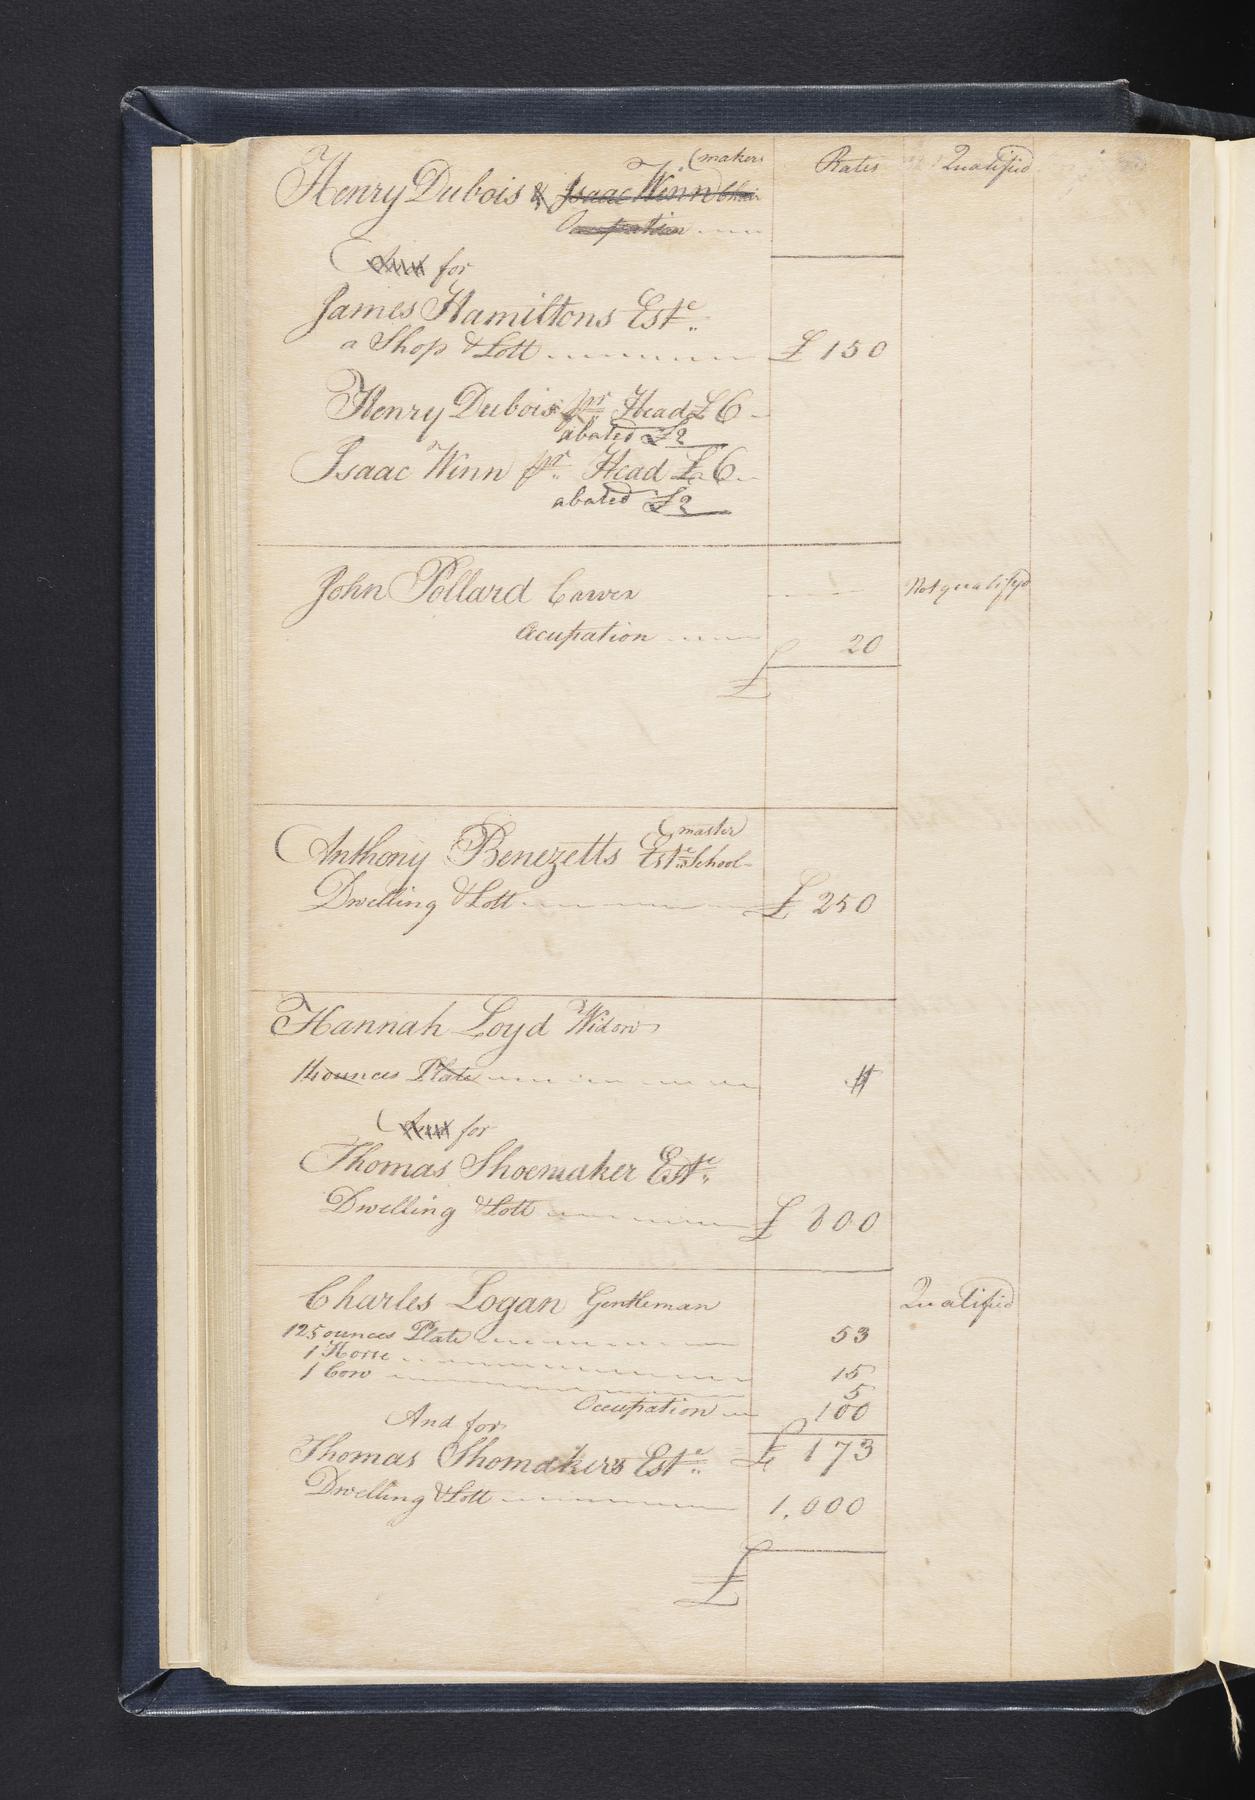 (makers Rates Qualified
Henry Dubois & Isaac Winn Chair
Occupation
And for
James Hamiltons Est.e
a Shop & Lott £ 150
Henry Dubois pr Head £6
abated £2
Isaac Winn pr Head £6
abated £2
John Pollard Carver Not qualifyd
Acupation 20
£
(master
Anthony Benezetts Est.e School
Dwelling & Lott £ 250
Hannah Loyd Widow
14 ounces Plate
And for
Thomas Shoemaker Est.e
Dwelling & Lott £ 800
Charles Logan Gentleman Qualified
125 ounces Plate 53
1 Horse 15
1 Cow 5
Occupation 100
And for
Thomas Shomakers Est.e £ 173
Dwelling & Lott 1,000
£